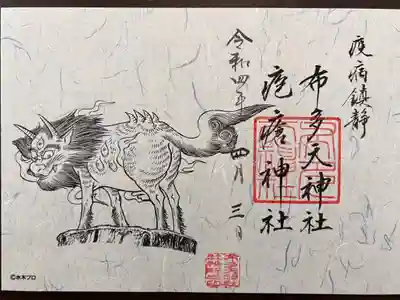 疫病鎮静
布多天神社
疱瘡神社
令和四年 四月 三日
©水木プロ